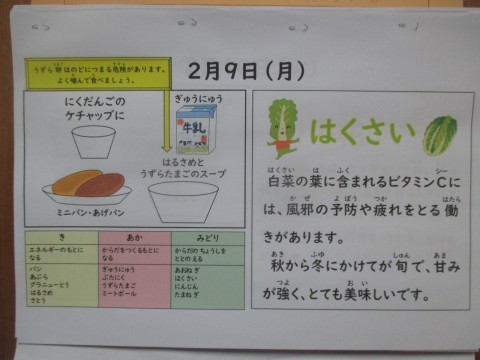 2月9日(月)
うずら卵はのどにつまる危険があります。
よく噛んで食べましょう。
にくだんごの
ケチャップに
ぎゅうにゅう
牛乳
はるさめと
うずらたまごのスープ
ミニパン・あげパン
き
あか
みどり
エネルギーのもとに
なる
からだをつくるもとに
なる
からだの ちょうしを
ととの える
パン
あぶら
グラニューとう
はるさめ
さとう
ぎゅうにゅう
ぶたにく
うずらたまご
ミートボール
あおねぎ
はくさい
にんじん
たまねぎ
はくさい
白菜の葉に含まれるビタミンCに
は、風邪の予防や疲れをとる働
きがあります。
秋から冬にかけてが旬で、甘み
が強く、とても美味しいです。